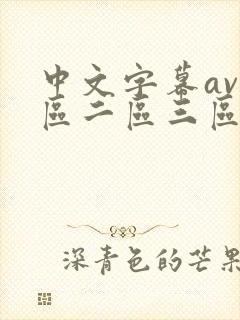 中文字幕av
區二區三區
深青色的芒果